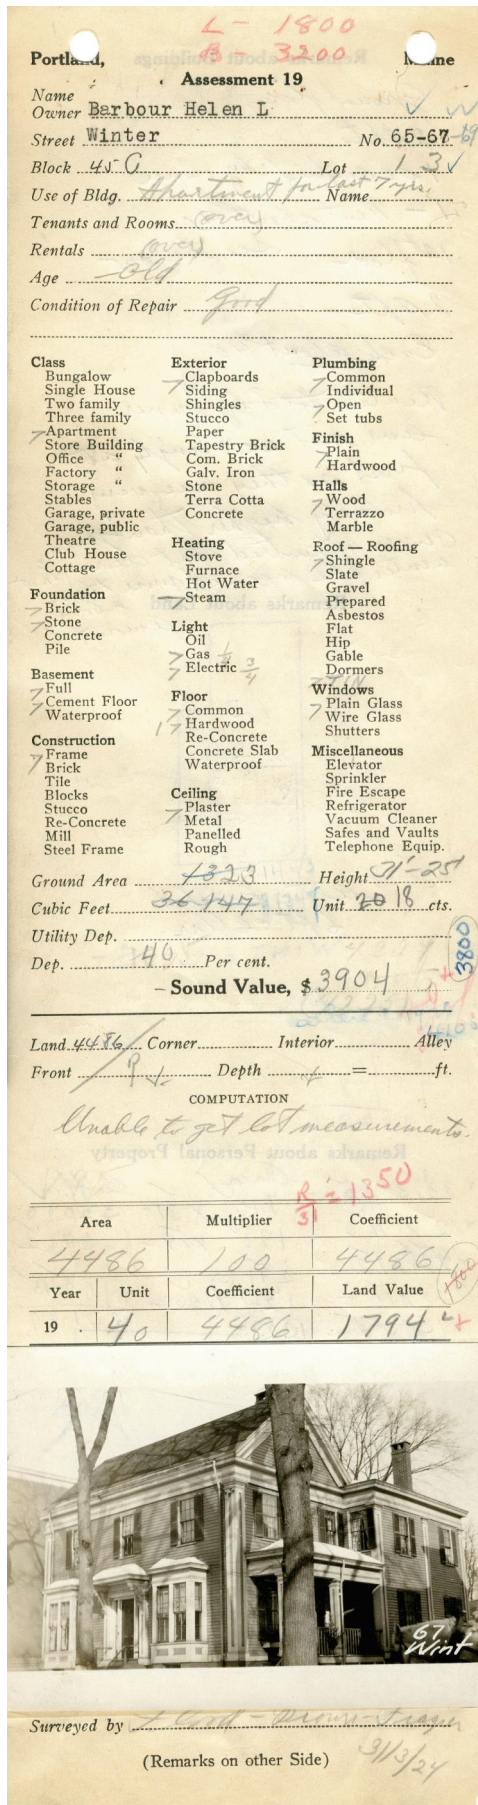 L - 1800
B - 3200
Portland, Maine
Assessment 19
Name
Owner Barbour Helen L
Street Winter No. 65-67-69
Block 45 C Lot 1 3
Use of Bldg. Apartment for last 7 yrs. Name
Tenants and Rooms (over)
Rentals (over)
Age Old
Condition of Repair Good
Class
Bungalow
Single House
Two family
Three family
Apartment
Store Building
Office "
Factory "
Storage "
Stables
Garage, private
Garage, public
Theatre
Club House
Cottage
Foundation
Brick
Stone
Concrete
Pile
Basement
Full
Cement Floor
Waterproof
Construction
Frame
Brick
Tile
Blocks
Stucco
Re-Concrete
Mill
Steel Frame
Exterior
Clapboards
Siding
Shingles
Stucco
Paper
Tapestry Brick
Com. Brick
Galv. Iron
Stone
Terra Cotta
Concrete
Heating
Stove
Furnace
Hot Water
Steam
Light
Oil
Gas 1/4
Electric 3/4
Floor
Common
Hardwood
Re-Concrete
Concrete Slab
Waterproof
Ceiling
Plaster
Metal
Panelled
Rough
Plumbing
Common
Individual
Open
Set tubs
Finish
Plain
Hardwood
Halls
Wood
Terrazzo
Marble
Roof — Roofing
Shingle
Slate
Gravel
Prepared
Asbestos
Flat
Hip
Gable
Dormers
Windows
Plain Glass
Wire Glass
Shutters
Miscellaneous
Elevator
Sprinkler
Fire Escape
Refrigerator
Vacuum Cleaner
Safes and Vaults
Telephone Equip.
Ground Area 1323 Height 31'-25'
Cubic Feet 36147 Unit 20 18 cts.
Utility Dep.
Dep. 40 Per cent.
3800
Sound Value, $ 3904
Land 4486 Corner Interior Alley
Front Depth = ft.
COMPUTATION
Unable to get lot measurements.
R/31 = 1350
Area Multiplier Coefficient
4486 100 4486
1800
Year Unit Coefficient Land Value
19 40 4486 1794
67
Wint
Surveyed by
(Remarks on other Side)
3/13/24